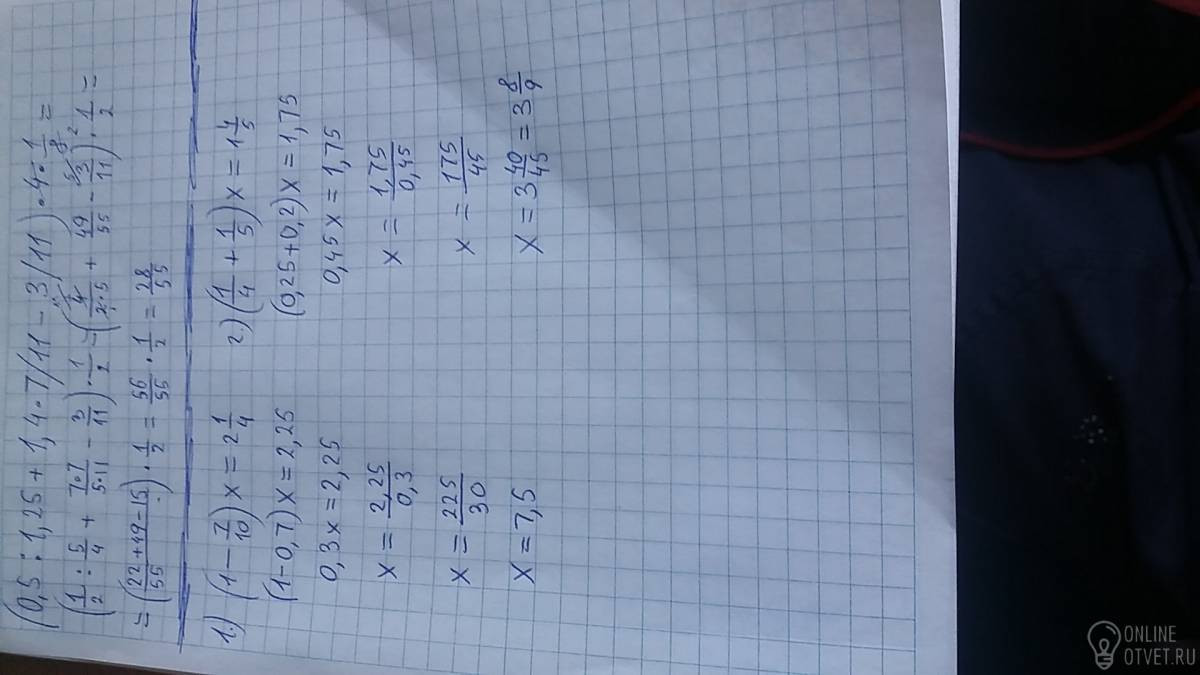 (0,5 : 1,25 + 1,4 • 7/11 − 3/11) • 4 • 1/8 =
(1/2 : 5/4 + 7•7/5•11 − 3/11) • 1/2 = (4/2•5 + 49/55 − 3/11) • 1/2 =
= (22+49−15/55) • 1/2 = 56/55 • 1/2 = 28/55
1.) (1 − 7/10) x = 2 1/4
(1−0,7) x = 2,25
0,3x = 2,25
x = 2,25/0,3
x = 225/30
x = 7,5
2.) (1/4 + 1/5) x = 1 4/5
(0,25+0,2) x = 1,75
0,45 x = 1,75
x = 1,75/0,45
x = 175/45
x = 3 40/45 = 3 8/9
ONLINE
OTVET.RU